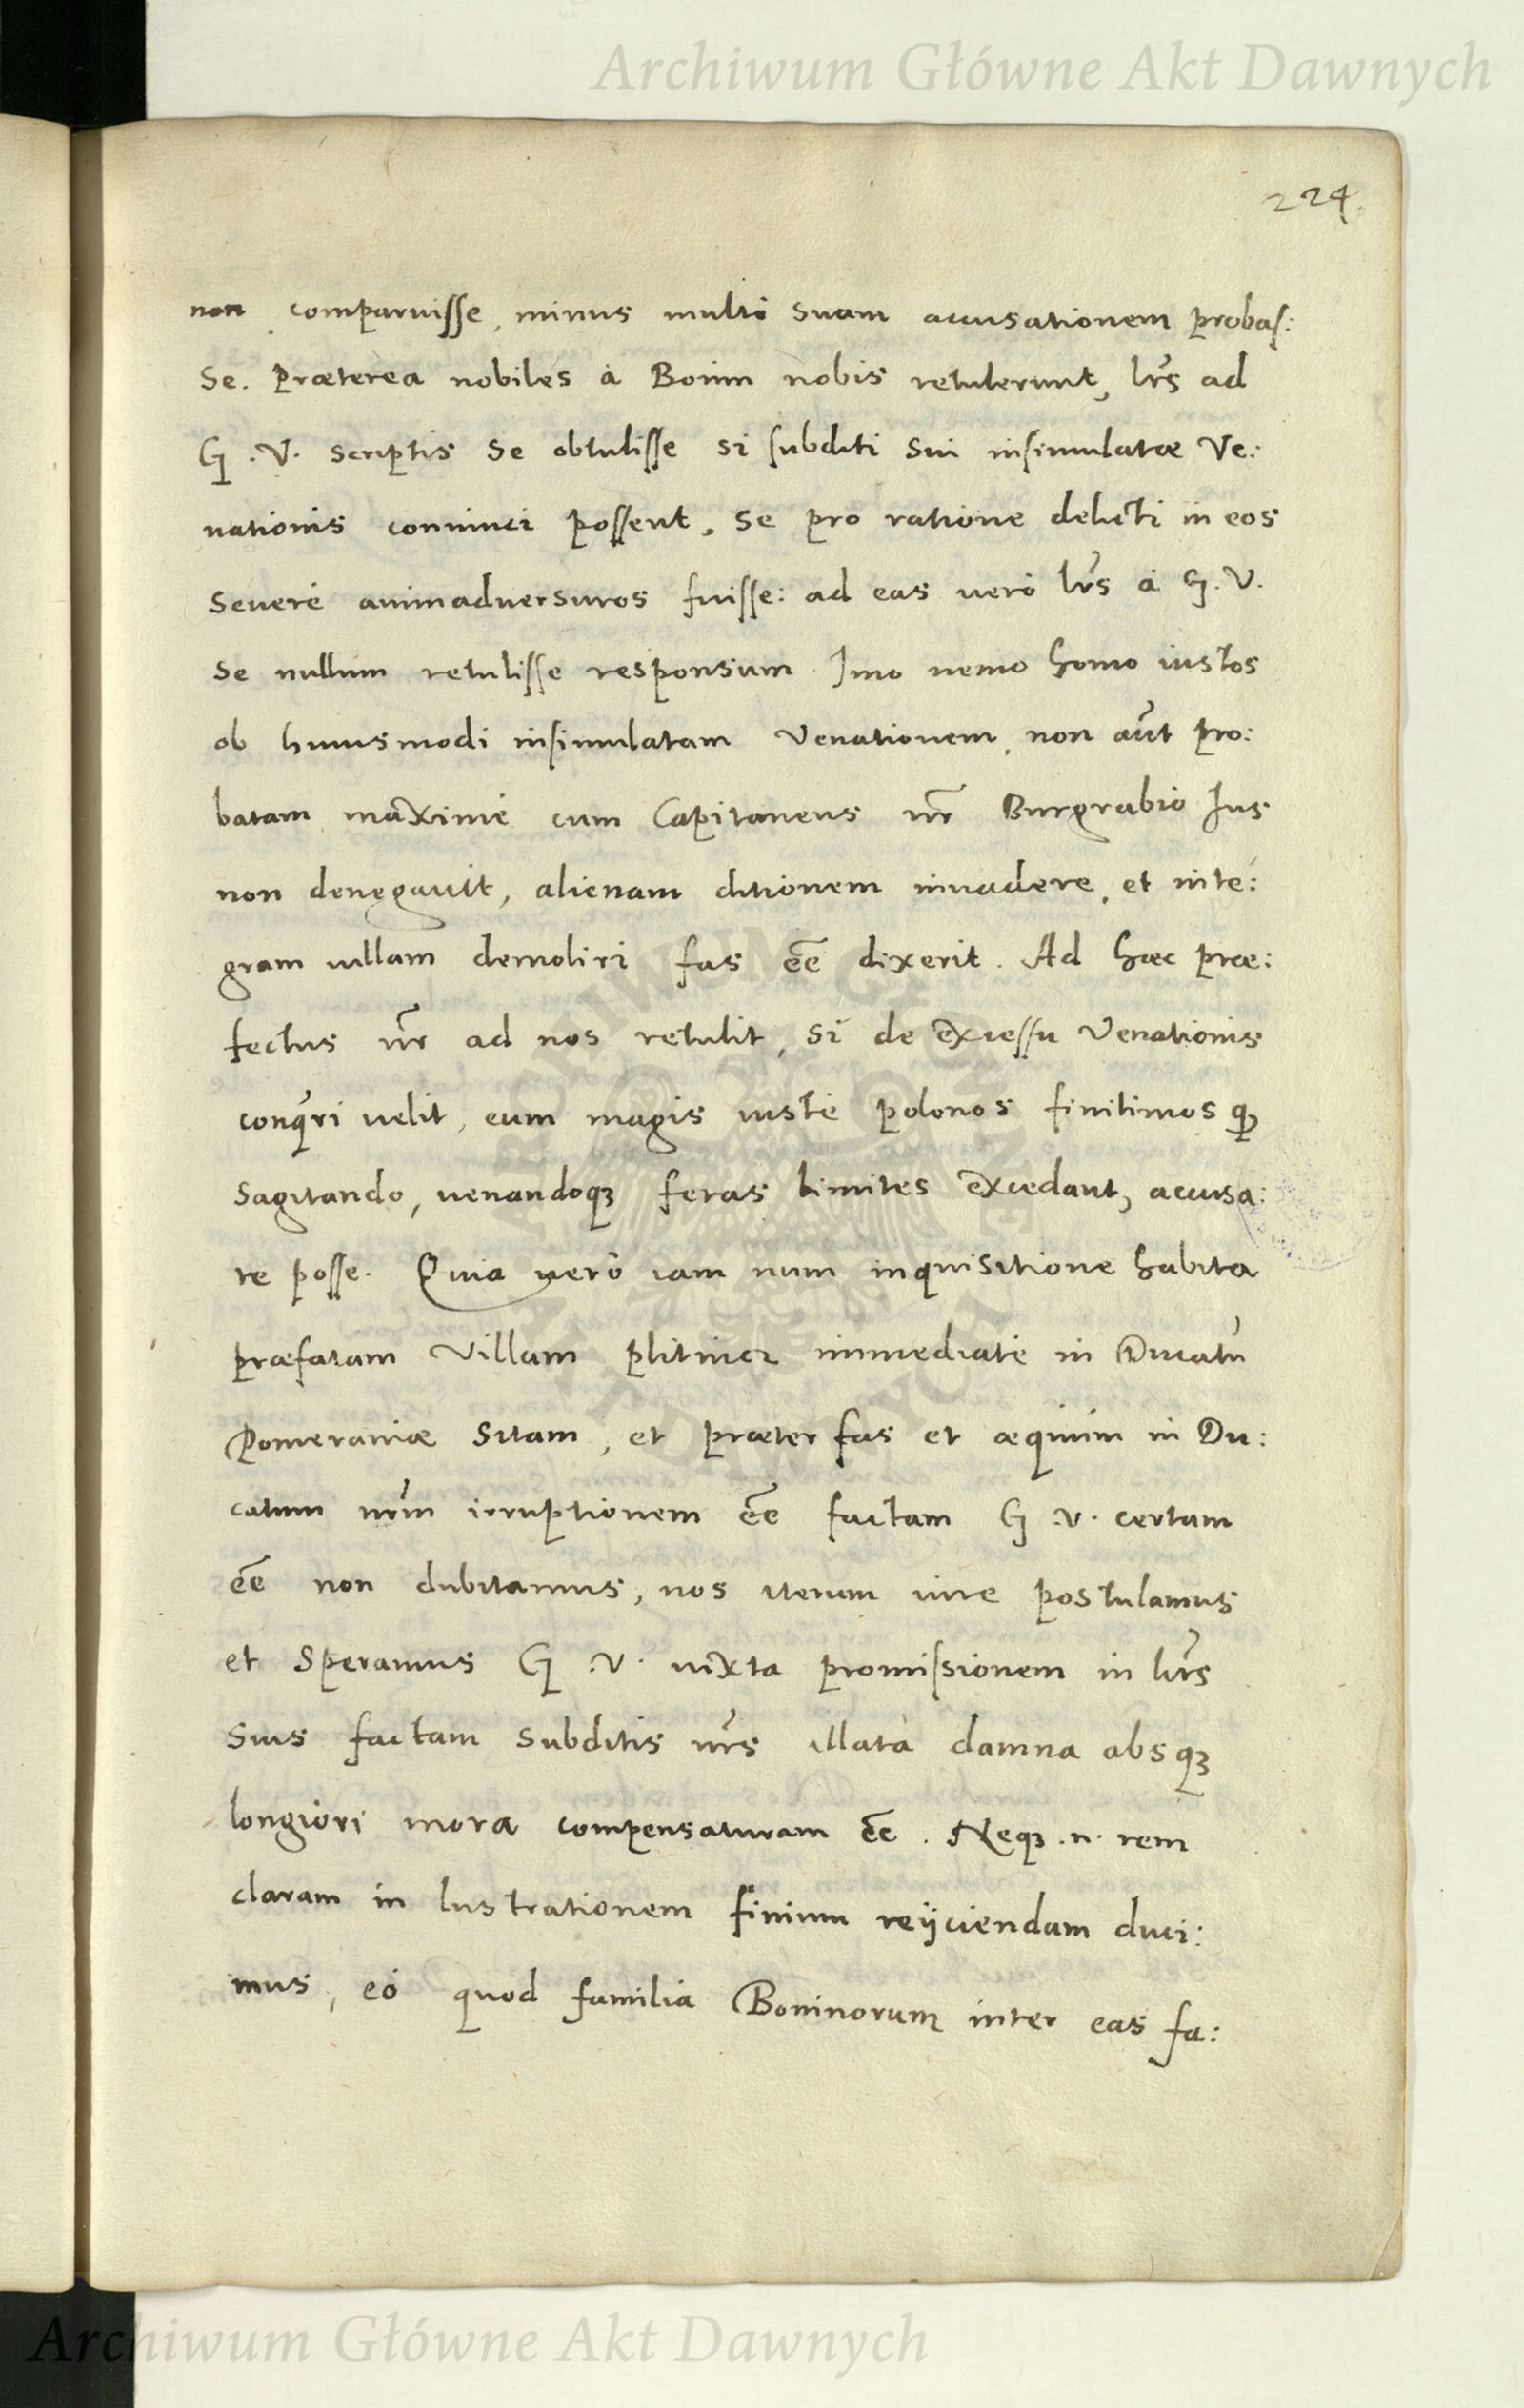 Archiwum Główne Akt Dawnych
224
non comparuisse, minus multò suam accusationem probas:
se. Præterea nobiles à Bonin nobis retulerunt, lr̃is ad
G. V. scriptis se obtulisse si subditi sui insimulatæ Ve:
nationis conuinci possent, se pro ratione delicti in eos
seuerè animaduersuros fuisse: ad eas verò lr̃as à G. V.
se nullum retulisse responsum Imo nemo homo iustos
ob huiusmodi insimulatam Venationem, non aũt pro:
batam, maximè cum Capitaneus nr̃ Burgrabio Jus
non denegauit, alienam ditionem inuadere, et inte:
gram villam demoliri fas eẽ dixerit. Ad hæc præ:
fectus nr̃ ad nos retulit, si de excessu Venationis
conqueri velit, eum magis iustè polonos finitimos qđ
sagitando, venandoqꝫ feras limites excedant, accusa:
re posse. Quia verò iam num inquisitione habita
præfatam Villam plitnicz immediatè in Ducatu
Pomeraniæ sitam, et præter fas et æquum in Du:
catum nr̃m irruptionem eẽ factam G. V. certam
eẽ non dubitamus, nos iterum iure postulamus
et speramus G. V. iuxta promissionem in lr̃is
suis factam subditis nr̃is illata damna absqꝫ
longiori mora compensaturam eẽ. Neqꝫ .n. rem
claram in lustrationem finium reijciendam duci:
mus, eò quod familia Boninorum inter eas fa:
Archiwum Główne Akt Dawnych